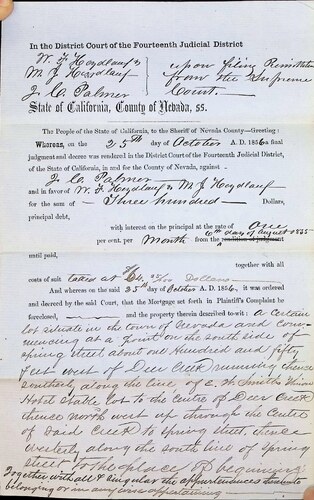 In the District Court of the Fourteenth Judicial District
W. F. Heydlauf &
M J Heydlauf
upon filing Remittitur
from the Supreme
Court.
J. C. Palmer
State of California, County of Nevada, ss.
The People of the State of California, to the Sheriff of Nevada County—Greeting:
Whereas, on the 25th day of October A. D. 1856 a final
judgment and decree was rendered in the District Court of the Fourteenth Judicial District,
of the State of California, in and for the County of Nevada, against
J. C. Palmer
and in favor of W. F. Heydlauf & M J Heydlauf
for the sum of Three hundred Dollars,
principal debt,
with interest on the principal at the rate of One
per cent. per Month from the rendition of judgment 6th day of August 1855
until paid,
together with all
costs of suit taxed at Dollars
And whereas on the said 25th day of October A. D. 1856, it was ordered
and decreed by the said Court, that the Mortgage set forth in Plaintiff's Complaint be
foreclosed, and the property therein described to-wit: a certain
lot situate in the town of Nevada and com-
mencing at a point on the south side of
spring street about one Hundred and fifty
feet west of Deer Creek running thence
southerly along the line of Smiths Union
Hotel Stable Lot to the Centre of Deer Creek
thence North west up through the Centre
of said Creek to spring street, thence
westerly along the south line of spring
street to the place of beginning
Together with all & singular the appurtenances thereunto
belonging or in any wise appertaining